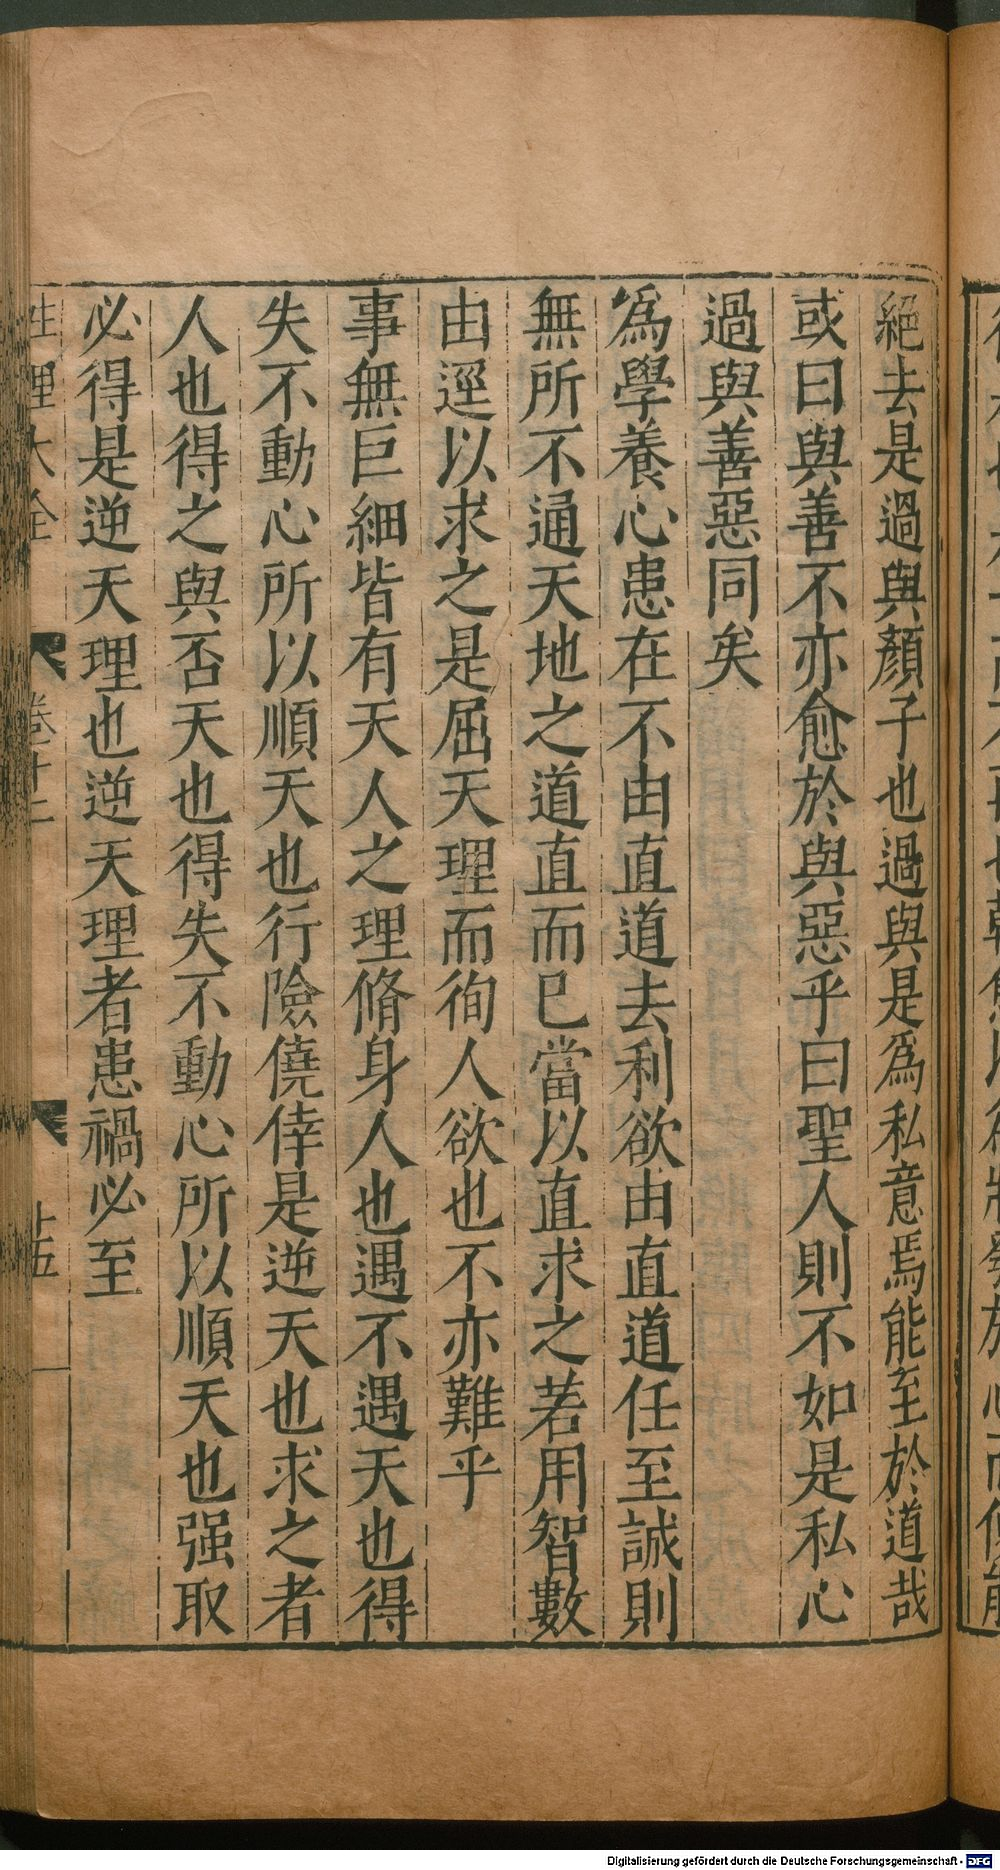 絕去是過與顏子也過與是爲私意焉能至於道哉
或曰與善不亦愈於與惡乎曰聖人則不如是私心
過與善惡同矣
爲學養心患在不由直道去利欲由直道任至誠則
無所不通天地之道直而已當以直求之若用智數
由逕以求之是屈天理而徇人欲也不亦難乎
事無巨細皆有天人之理脩身人也遇不遇天也得
失不動心所以順天也行險僥倖是逆天也求之者
人也得之與否天也得失不動心所以順天也强取
必得是逆天理也逆天理者患禍必至
性理大全 卷十二 十五
Digitalisierung gefördert durch die Deutsche Forschungsgemeinschaft - DFG